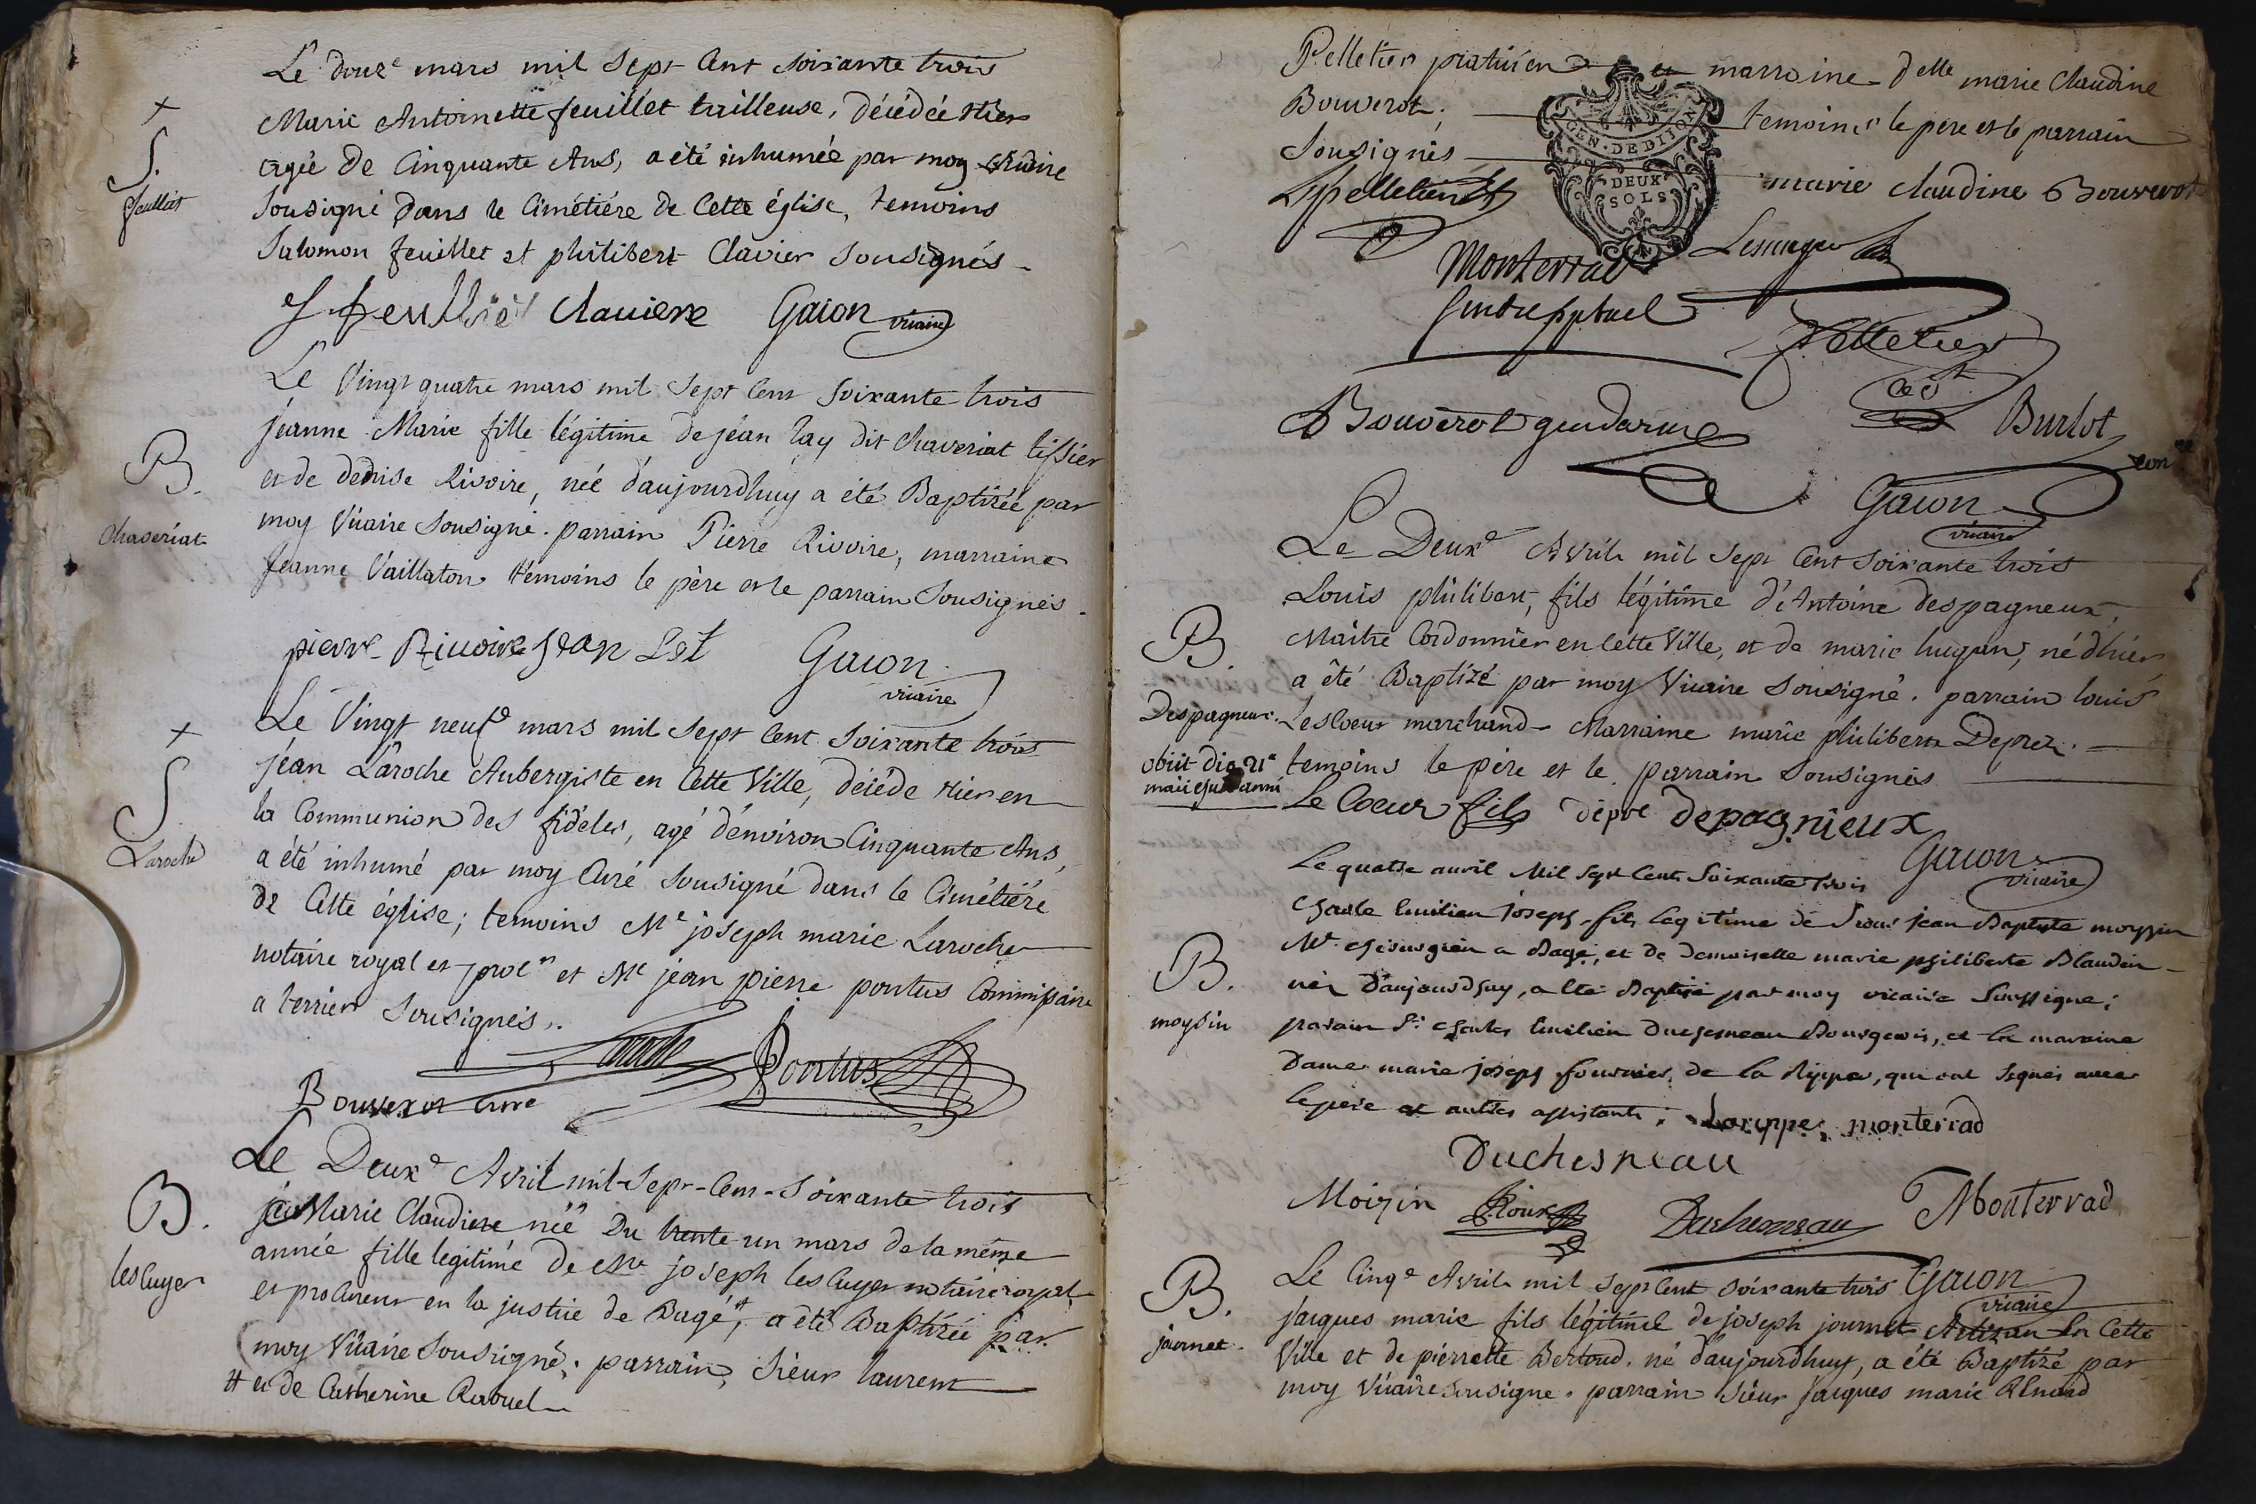 Le douz.e mars mil Sept Cent soixante trois
+
S.
feuillet
Marie Antoinette feuillet tailleuse, décédée Hier
agée de Cinquante Ans, a été inhumée par moy Vicaire
Sousigné Dans le Cimétiére de Cette église, temoins
Salomon feuillet et philibert Clavier Sousignés
S feulliet Claviere Gacon vicaire
Le Vingt quatre mars mil Sept Cent Soixante trois
B.
Chaveriat
jéanne Marie fille légitime de jéan lay dit Chaveriat tissier
et de denise Rivoire, née d'aujourdhuy a été Baptizée par
moy Vicaire Sousigné. parrain Pierre Rivoire, marraine
Jeanne Vaillaton témoins le père et le parrain Sousignés.
pierre Rivoire jean Let Gacon
vicaire
Le Vingt neuf.e mars mil sept Cent Soixante trois
+
S
Laroche
jéan Laroche Aubergiste en Cette Ville, décédé Hier en
la Communion des fidéles, agé d'environ Cinquante Ans,
a été inhumé par moy Curé Sousigné dans le Cimétiére
de Cette église; temoins Me joseph marie Laroche
notaire royal et proc.r et Me jean pierre pontus Commissaire
a terrier Sousignés.
Laroche Pontus
Bouverot curé
Le Deux.e Avril mil-Sept-Cent-Soixante trois
B.
lescuyer
Marie Claudine née Du trente-un mars de la même
année fille legitime de Me joseph lescuyer notaire royal
et procureur en la justice de Bagé,# a été Baptizée par
moy Vicaire Sousigné. parrain, Sieur laurent
# et de Catherine Raouel
Pelletier praticien et marraine delle marie Claudine
Bouverot; temoins le père et le parrain
Sousignés
GEN. DE DIJON
DEUX
SOLS
Lpelletier marie claudine Bouverot
Monterrad Lescuyer
Pelletier
Bouverot gendarme Burlot
Gacon
vicaire
Le Deux.e Avril mil Sept Cent Soixante trois
Louis philibert, fils légitime d'Antoine despagneux,
B.
Despagneux.
obiit die 21a
maii ejusd anni
Maitre Cordonnier en Cette Ville, et de marie hugan, né d'hier
a été Baptizé par moy Vicaire Sousigné. parrain louis
LesCoeur marchand Marraine marie philiberte Deprez.
temoins le père et le parrain Sousignés
Le Coeur fils depre depagnieux
Gacon
vicaire
Le quatre avril Mil Sept Cent Soixante trois
B.
moysin
Charle Emilien joseph fils legitime de Sieur jean Baptiste moyzin
Me chirurgien a Bagé, et de demoiselle marie philiberte Blandin
né D'aujourdhuy, a été Baptisé par moy vicaire Soussigné;
parain Sr Charles Emilien Duchesneau Bourgeois, et la maraine
Dame marie joseph fournier de la Rippe, qui ont signés avec
le père et autres assistants. Larippe, monterrad
Duchesneau
Moizin Rioux Duchesneau Monterrad
Le Cinq.e Avril mil sept Cent soixante trois Gacon
vicaire
B.
journet.
jacques marie fils légitime de joseph journet Artizan en Cette
Ville et de pierrette Bertoud. né d'aujourdhuy, a été Baptizé par
moy Vicaire sousigné. parrain Sieur Jacques marie Renard